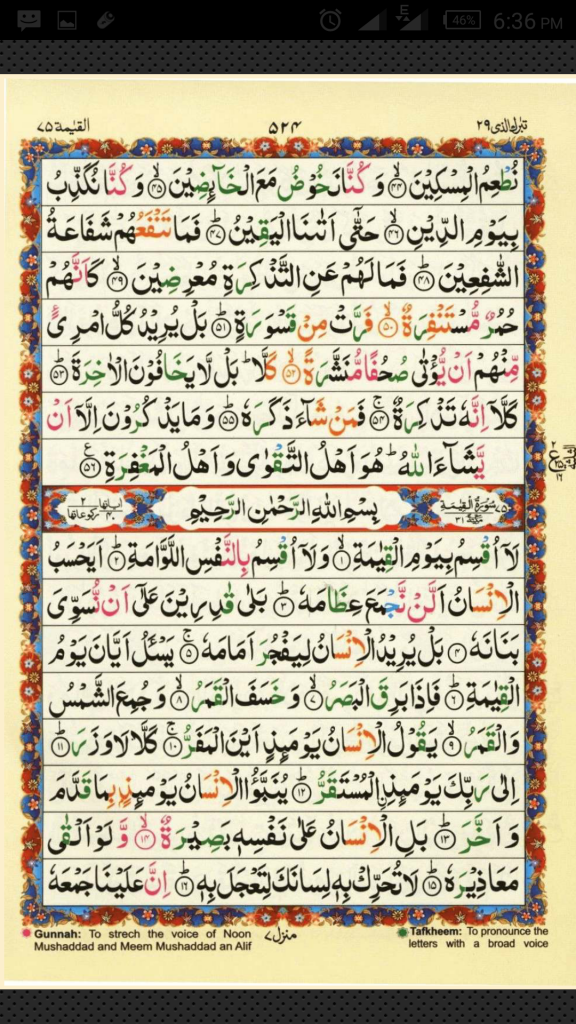 46% 6:36 PM
تبرك الذی ۲۹ ۵۲۴ القیٰمة ۷۵
نُطْعِمُ الْمِسْكِيْنَ ۙ‏﴿۴۴﴾ وَ كُنَّا نَخُوْضُ مَعَ الْخَآئِضِيْنَ ۙ‏﴿۴۵﴾ وَ كُنَّا نُكَذِّبُ
بِيَوْمِ الدِّيْنِ ۙ‏﴿۴۶﴾ حَتّٰٓى اَتٰٮنَا الْيَقِيْنُ ؕ‏﴿۴۷﴾ فَمَا تَنْفَعُهُمْ شَفَاعَةُ
الشّٰفِعِيْنَ ؕ‏﴿۴۸﴾ فَمَا لَهُمْ عَنِ التَّذْكِرَةِ مُعْرِضِيْنَ ۙ‏﴿۴۹﴾ كَاَنَّهُمْ
حُمُرٌ مُّسْتَنْفِرَةٌ ۙ‏﴿۵۰﴾ فَرَّتْ مِنْ قَسْوَرَةٍ ؕ‏﴿۵۱﴾ بَلْ يُرِيْدُ كُلُّ امْرِیٴٍ
مِّنْهُمْ اَنْ يُّؤْتٰى صُحُفًا مُّنَشَّرَةً ۙ‏﴿۵۲﴾ كَلَّا ؕ بَلْ لَّا يَخَافُوْنَ الْاٰخِرَةَ ؕ‏﴿۵۳﴾
كَلَّاۤ اِنَّهٗ تَذْكِرَةٌ ۚ‏﴿۵۴﴾ فَمَنْ شَآءَ ذَكَرَهٗ ؕ‏﴿۵۵﴾ وَمَا يَذْكُرُوْنَ اِلَّاۤ اَنْ
يَّشَآءَ اللّٰهُ ؕ هُوَ اَهْلُ التَّقْوٰى وَ اَهْلُ الْمَغْفِرَةِ ‏﴿۵۶﴾ ع
۷۵ سُوْرَةُ الْقِيٰمَةِ مَكِّيَّةٌ ۳۱ بِسْمِ اللّٰهِ الرَّحْمٰنِ الرَّحِيْمِ اٰیاتها ۴۰ رکوعاتها ۲
لَاۤ اُقْسِمُ بِيَوْمِ الْقِيٰمَةِ ۙ‏﴿۱﴾ وَلَاۤ اُقْسِمُ بِالنَّفْسِ اللَّوَّامَةِ ؕ‏﴿۲﴾ اَيَحْسَبُ
الْاِنْسَانُ اَلَّنْ نَّجْمَعَ عِظَامَهٗ ؕ‏﴿۳﴾ بَلٰى قٰدِرِيْنَ عَلٰٓى اَنْ نُّسَوِّىَ
بَنَانَهٗ ‏﴿۴﴾ بَلْ يُرِيْدُ الْاِنْسَانُ لِيَفْجُرَ اَمَامَهٗ ۚ‏﴿۵﴾ يَسْئَلُ اَيَّانَ يَوْمُ
الْقِيٰمَةِ ؕ‏﴿۶﴾ فَاِذَا بَرِقَ الْبَصَرُ ۙ‏﴿۷﴾ وَخَسَفَ الْقَمَرُ ۙ‏﴿۸﴾ وَجُمِعَ الشَّمْسُ
وَالْقَمَرُ ۙ‏﴿۹﴾ يَقُوْلُ الْاِنْسَانُ يَوْمَئِذٍ اَيْنَ الْمَفَرُّ ۚ‏﴿۱۰﴾ كَلَّا لَا وَزَرَ ؕ‏﴿۱۱﴾
اِلٰى رَبِّكَ يَوْمَئِذِ اۨلْمُسْتَقَرُّ ؕ‏﴿۱۲﴾ يُنَبَّؤُا الْاِنْسَانُ يَوْمَئِذٍۢ بِمَا قَدَّمَ
وَ اَخَّرَ ؕ‏﴿۱۳﴾ بَلِ الْاِنْسَانُ عَلٰى نَفْسِهٖ بَصِيْرَةٌ ۙ‏﴿۱۴﴾ وَّ لَوْ اَلْقٰى
مَعَاذِيْرَهٗ ؕ‏﴿۱۵﴾ لَا تُحَرِّكْ بِهٖ لِسَانَكَ لِتَعْجَلَ بِهٖ ؕ‏﴿۱۶﴾ اِنَّ عَلَيْنَا جَمْعَهٗ
منزل ۷
Gunnah: To strech the voice of Noon
Mushaddad and Meem Mushaddad an Alif
Tafkheem: To pronounce the
letters with a broad voice